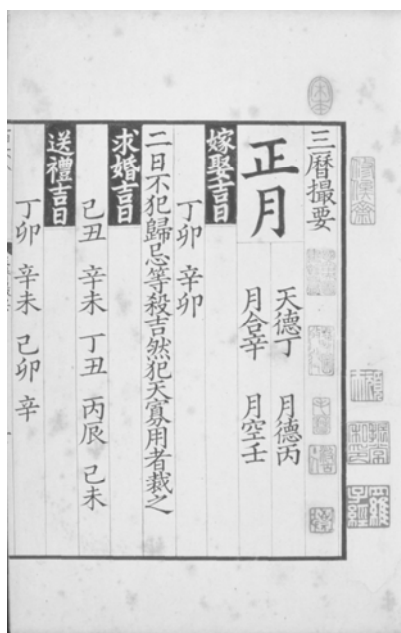 三曆撮要
正月
天德丁 月德丙
月合辛 月空壬
嫁娶吉日
丁卯 辛卯
二日不犯歸忌等殺吉然犯天寡用者裁之
求婚吉日
己丑 辛未 丁丑 丙辰 己未
送禮吉日
丁卯 辛未 己卯 辛